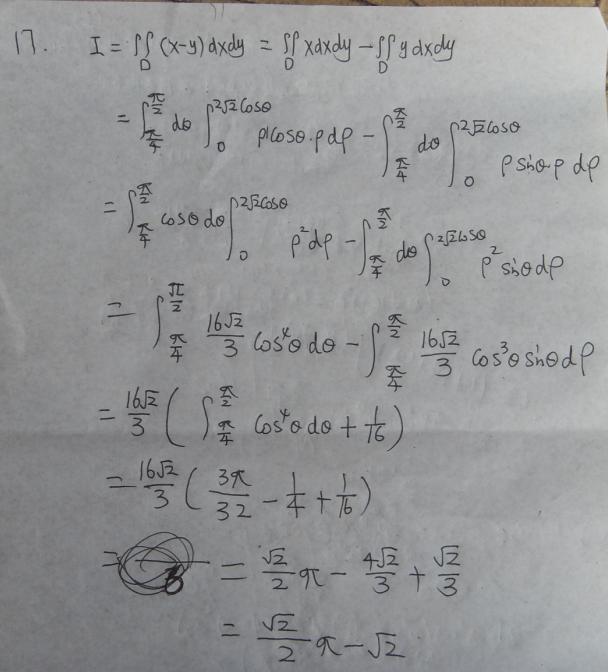 17. I = ∬_D (x-y)dxdy = ∬_D xdxdy - ∬_D ydxdy
= ∫_{π/4}^{π/2} dθ ∫_0^{2√2cosθ} ρcosθ·ρdρ - ∫_{π/4}^{π/2} dθ ∫_0^{2√2cosθ} ρsinθ·ρdρ
= ∫_{π/4}^{π/2} cosθdθ ∫_0^{2√2cosθ} ρ²dρ - ∫_{π/4}^{π/2} dθ ∫_0^{2√2cosθ} ρ²sinθdρ
= ∫_{π/4}^{π/2} 16√2/3 cos⁴θdθ - ∫_{π/4}^{π/2} 16√2/3 cos³θsinθdρ
= 16√2/3 ( ∫_{π/4}^{π/2} cos⁴θdθ + 1/16 )
= 16√2/3 ( 3π/32 - 1/4 + 1/16 )
= = √2/2 π - 4√2/3 + √2/3
= √2/2 π - √2